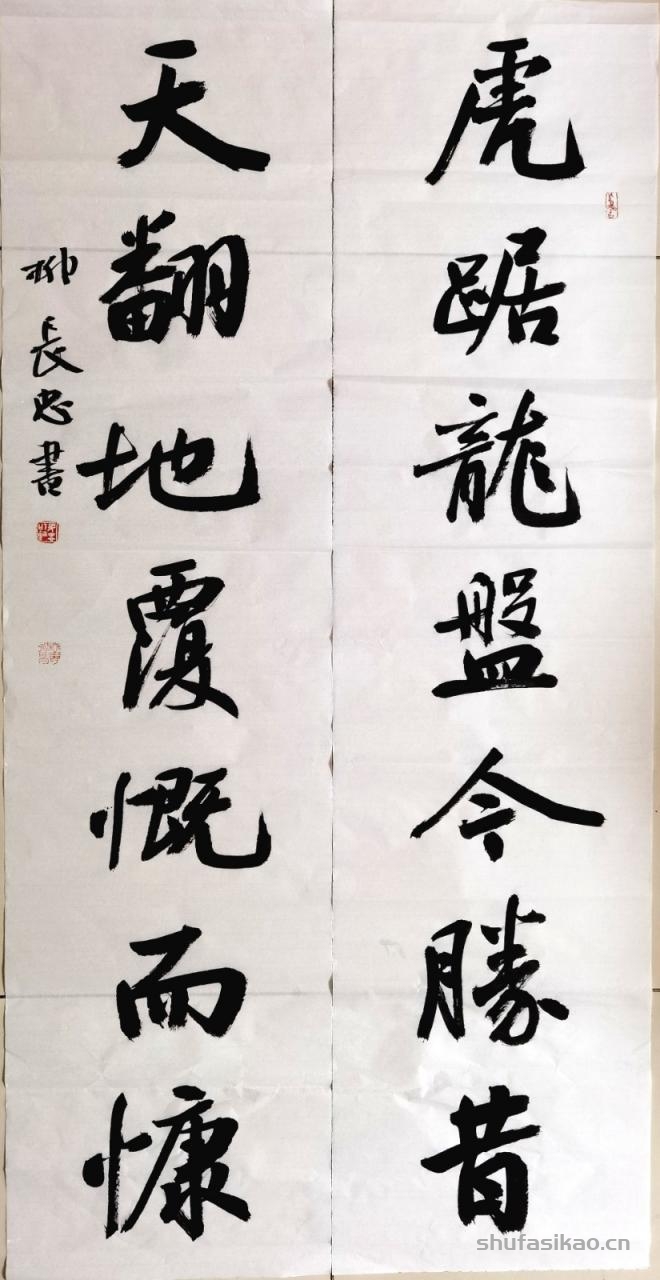 虎踞龍盤今勝昔
天翻地覆慨而慷
柳長忠書
shufasikao.cn